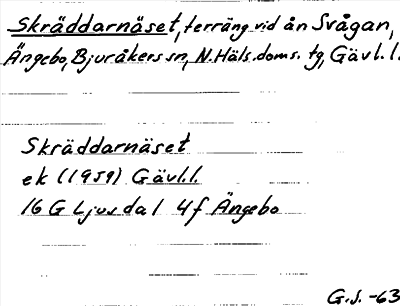 Skräddarnäset, terräng vid ån Svågan,
Ängebo, Bjuråkers sn, N. Häls. doms. tg, Gävl. l.
Skräddarnäset
ek (1959) Gävl. l.
16 G Ljusdal 4f Ängebo
G.J. -63